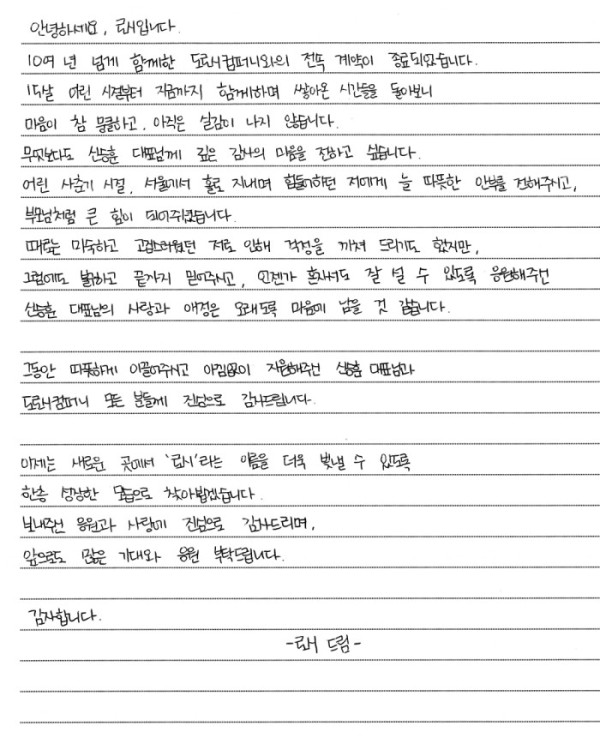 안녕하세요, 로시입니다.
10여 년 넘게 함께한 도로시컴퍼니와의 전속 계약이 종료되었습니다.
15살 어린 시절부터 지금까지 함께하며 쌓아온 시간들을 돌아보니
마음이 참 뭉클하고, 아직은 실감이 나지 않습니다.
무엇보다도 신승훈 대표님께 깊은 감사의 마음을 전하고 싶습니다.
어린 사춘기 시절, 서울에서 홀로 지내며 힘들어하던 저에게 늘 따뜻한 안부를 건네주시고,
부모님처럼 큰 힘이 되어주셨습니다.
때로는 미숙하고 고집스러웠던 저로 인해 걱정을 끼쳐 드리기도 했지만,
그럼에도 불구하고 끝까지 믿어주시고, 언젠가 혼자서도 잘 설 수 있도록 응원해주신
신승훈 대표님의 사랑과 애정은 오래도록 마음에 남을 것 같습니다.
그동안 따뜻하게 이끌어주시고 아낌없이 지원해주신 신승훈 대표님과
도로시컴퍼니 모든 분들께 진심으로 감사드립니다.
이제는 새로운 곳에서 '로시'라는 이름을 더욱 빛낼 수 있도록
한층 성장한 모습으로 찾아뵙겠습니다.
보내주신 응원과 사랑에 진심으로 감사드리며,
앞으로도 많은 기대와 응원 부탁드립니다.
감사합니다.
-로시 드림-